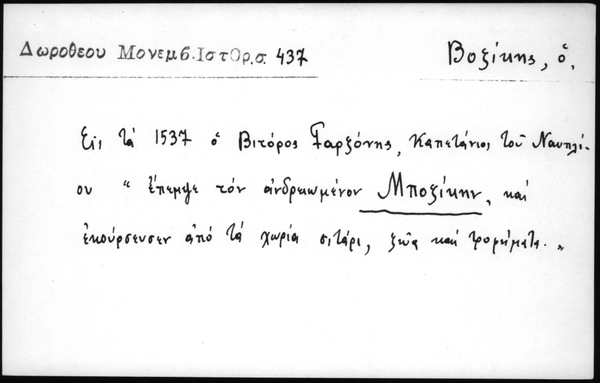 Δωροθεου Μονεμβ.Ιστορ.σ. 437
Βοξίκης, ὁ.
Εἰς τὰ 1537 ὁ Βιτόρος Γαρζόνης, καπετάνιος τοῦ Ναυπλί-
ου "ἔπεμψε τὸν ἀνδρειωμένον Μποξίκην, καὶ
ἐκούρσευσεν ἀπὸ τὰ χωρία σιτάρι, ζῶα καὶ τροφήματα."